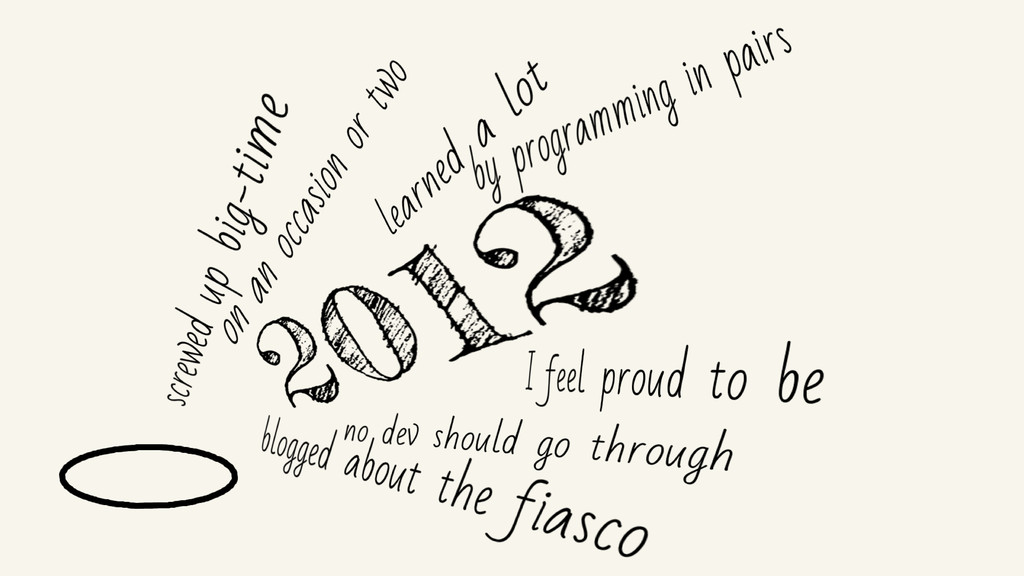 screwed up big-time
on an occasion or two
learned a lot
by programming in pairs
2012
I feel proud to be
no dev should go through
blogged about the fiasco